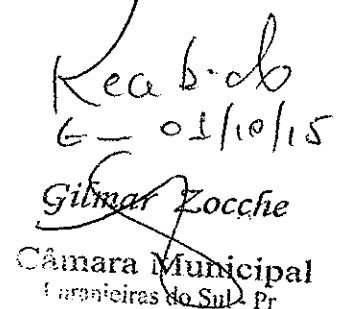 Recebido
01/10/15
Gilmar Zocche
Câmara Municipal
Laranjeiras do Sul - Pr